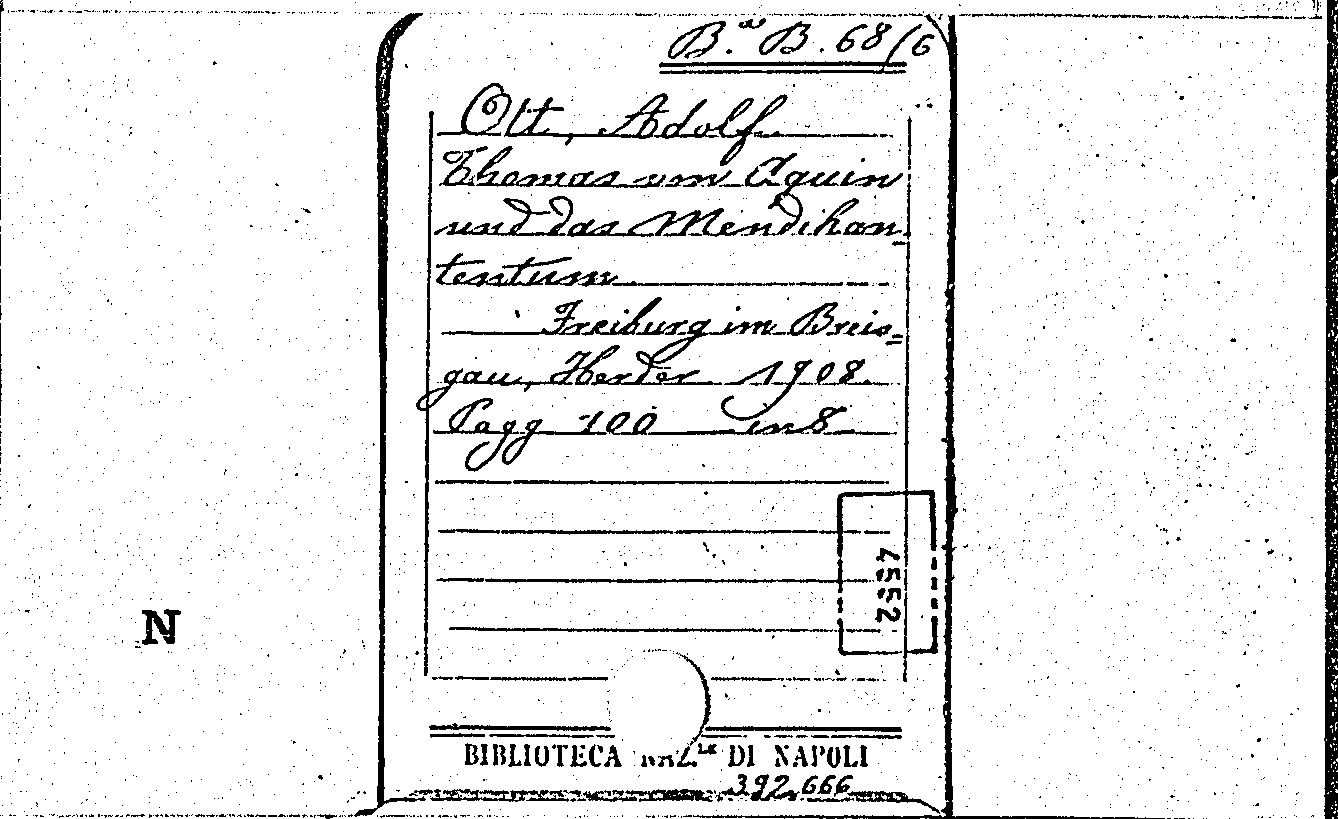 B.ta B. 68/6
Ott, Adolf
Thomas von Aquin
und das Mendikan-
tentum
Freiburg im Breis=
gau, Herder 1908.
Pagg 100 in 8
4552
N
BIBLIOTECA NAZ.LE DI NAPOLI
392,666